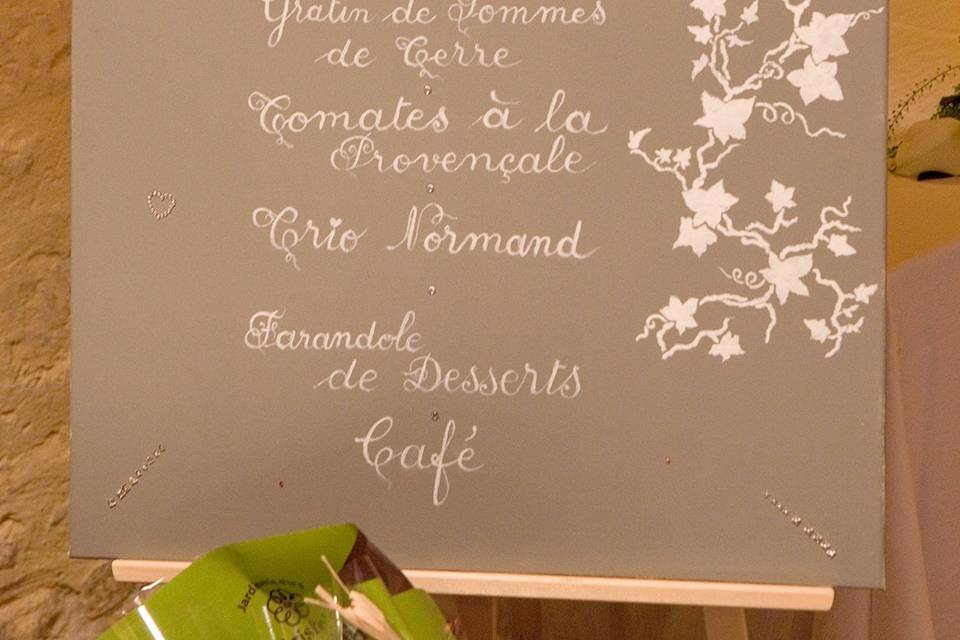 Gratin de Pommes
de Terre
Tomates à la
Provençale
Trio Normand
Farandole
de Desserts
Café